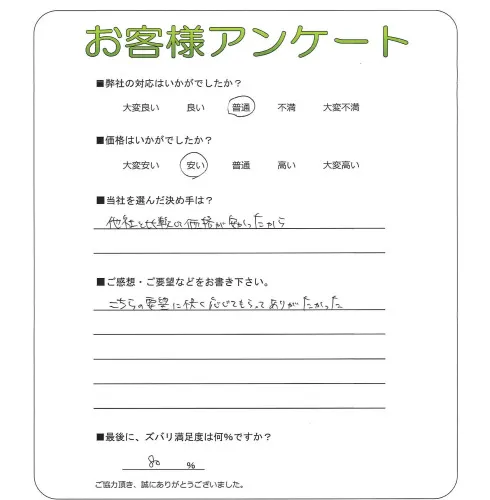 お客様アンケート
■弊社の対応はいかがでしたか?
大変良い 良い 普通 不満 大変不満
■価格はいかがでしたか?
大変安い 安い 普通 高い 大変高い
■当社を選んだ決め手は?
他社と比較の価格が安かったから
■ご感想・ご要望などをお書き下さい。
こちらの要望に快く応じてもらってありがたかった
■最後に、ズバリ満足度は何%ですか?
80 %
ご協力頂き、誠にありがとうございました。